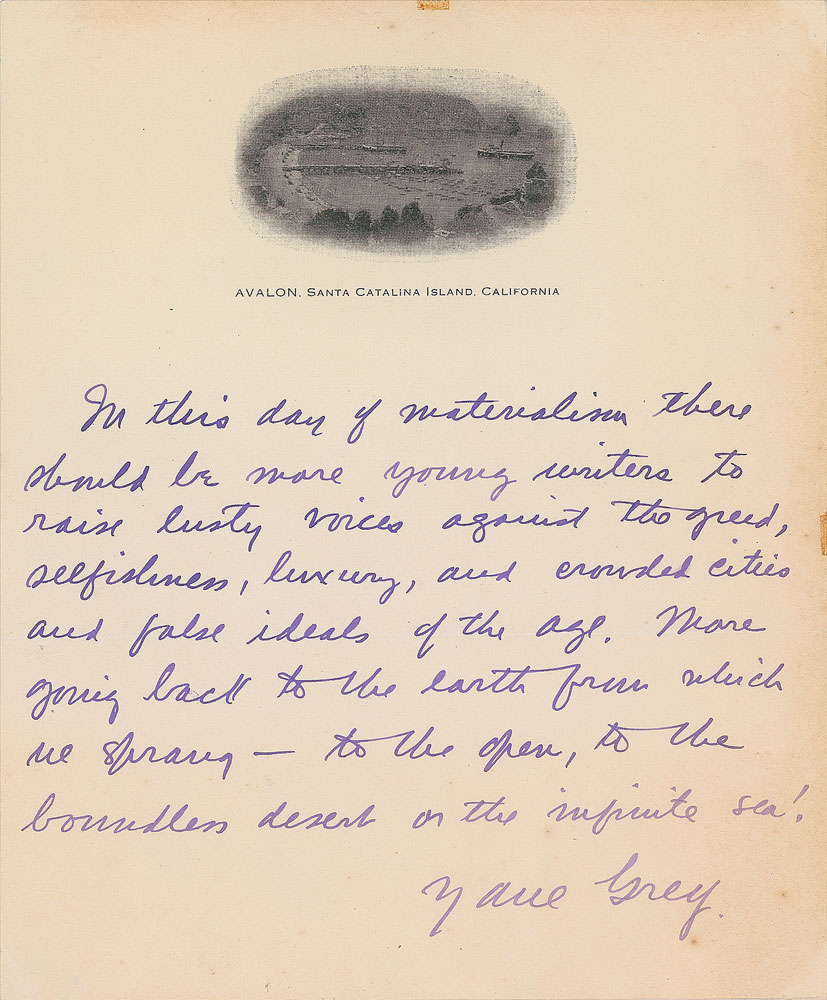 AVALON, Santa Catalina Island, California
In this day of materialism there
should be more young writers to
raise lusty voices against the greed,
selfishness, luxury, and crowded cities
and false ideals of the age. More
going back to the earth from which
we sprang — to the open, to the
boundless desert or the infinite sea!
Zane Grey.